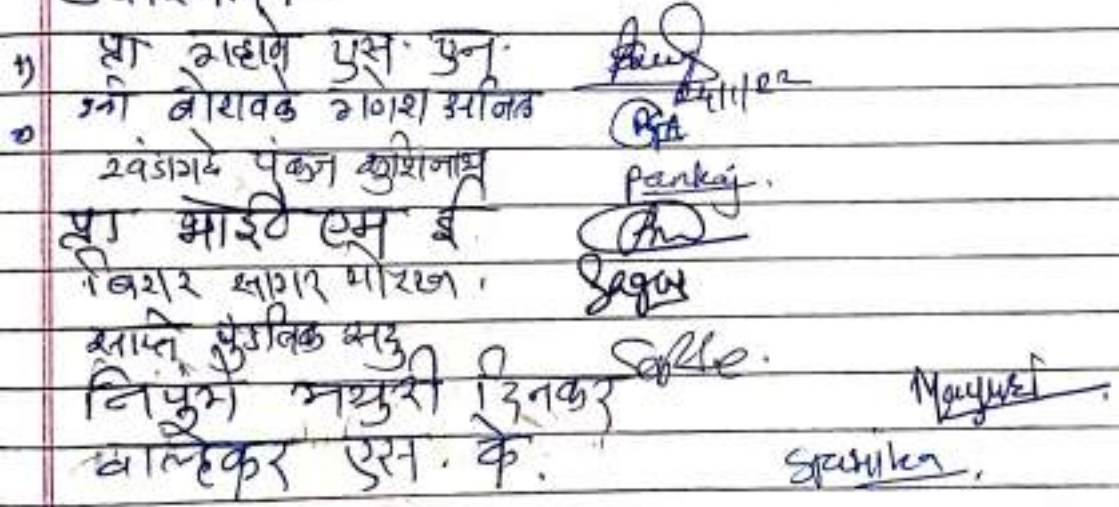 १) प्रा गहाने एस. एन. 24/1/22
२) श्री बोरावके गणेश अनिल PGA
खंडागळे पंकज काशिनाथ Pankaj.
प्रा भोईटे एम ई.
बिरार सागर गोरख. Sagar
साप्ते पुंडलिक सदु Sapte.
निपुंगे मयुरी दिनकर Mayuri
वाल्हेकर एस. के.